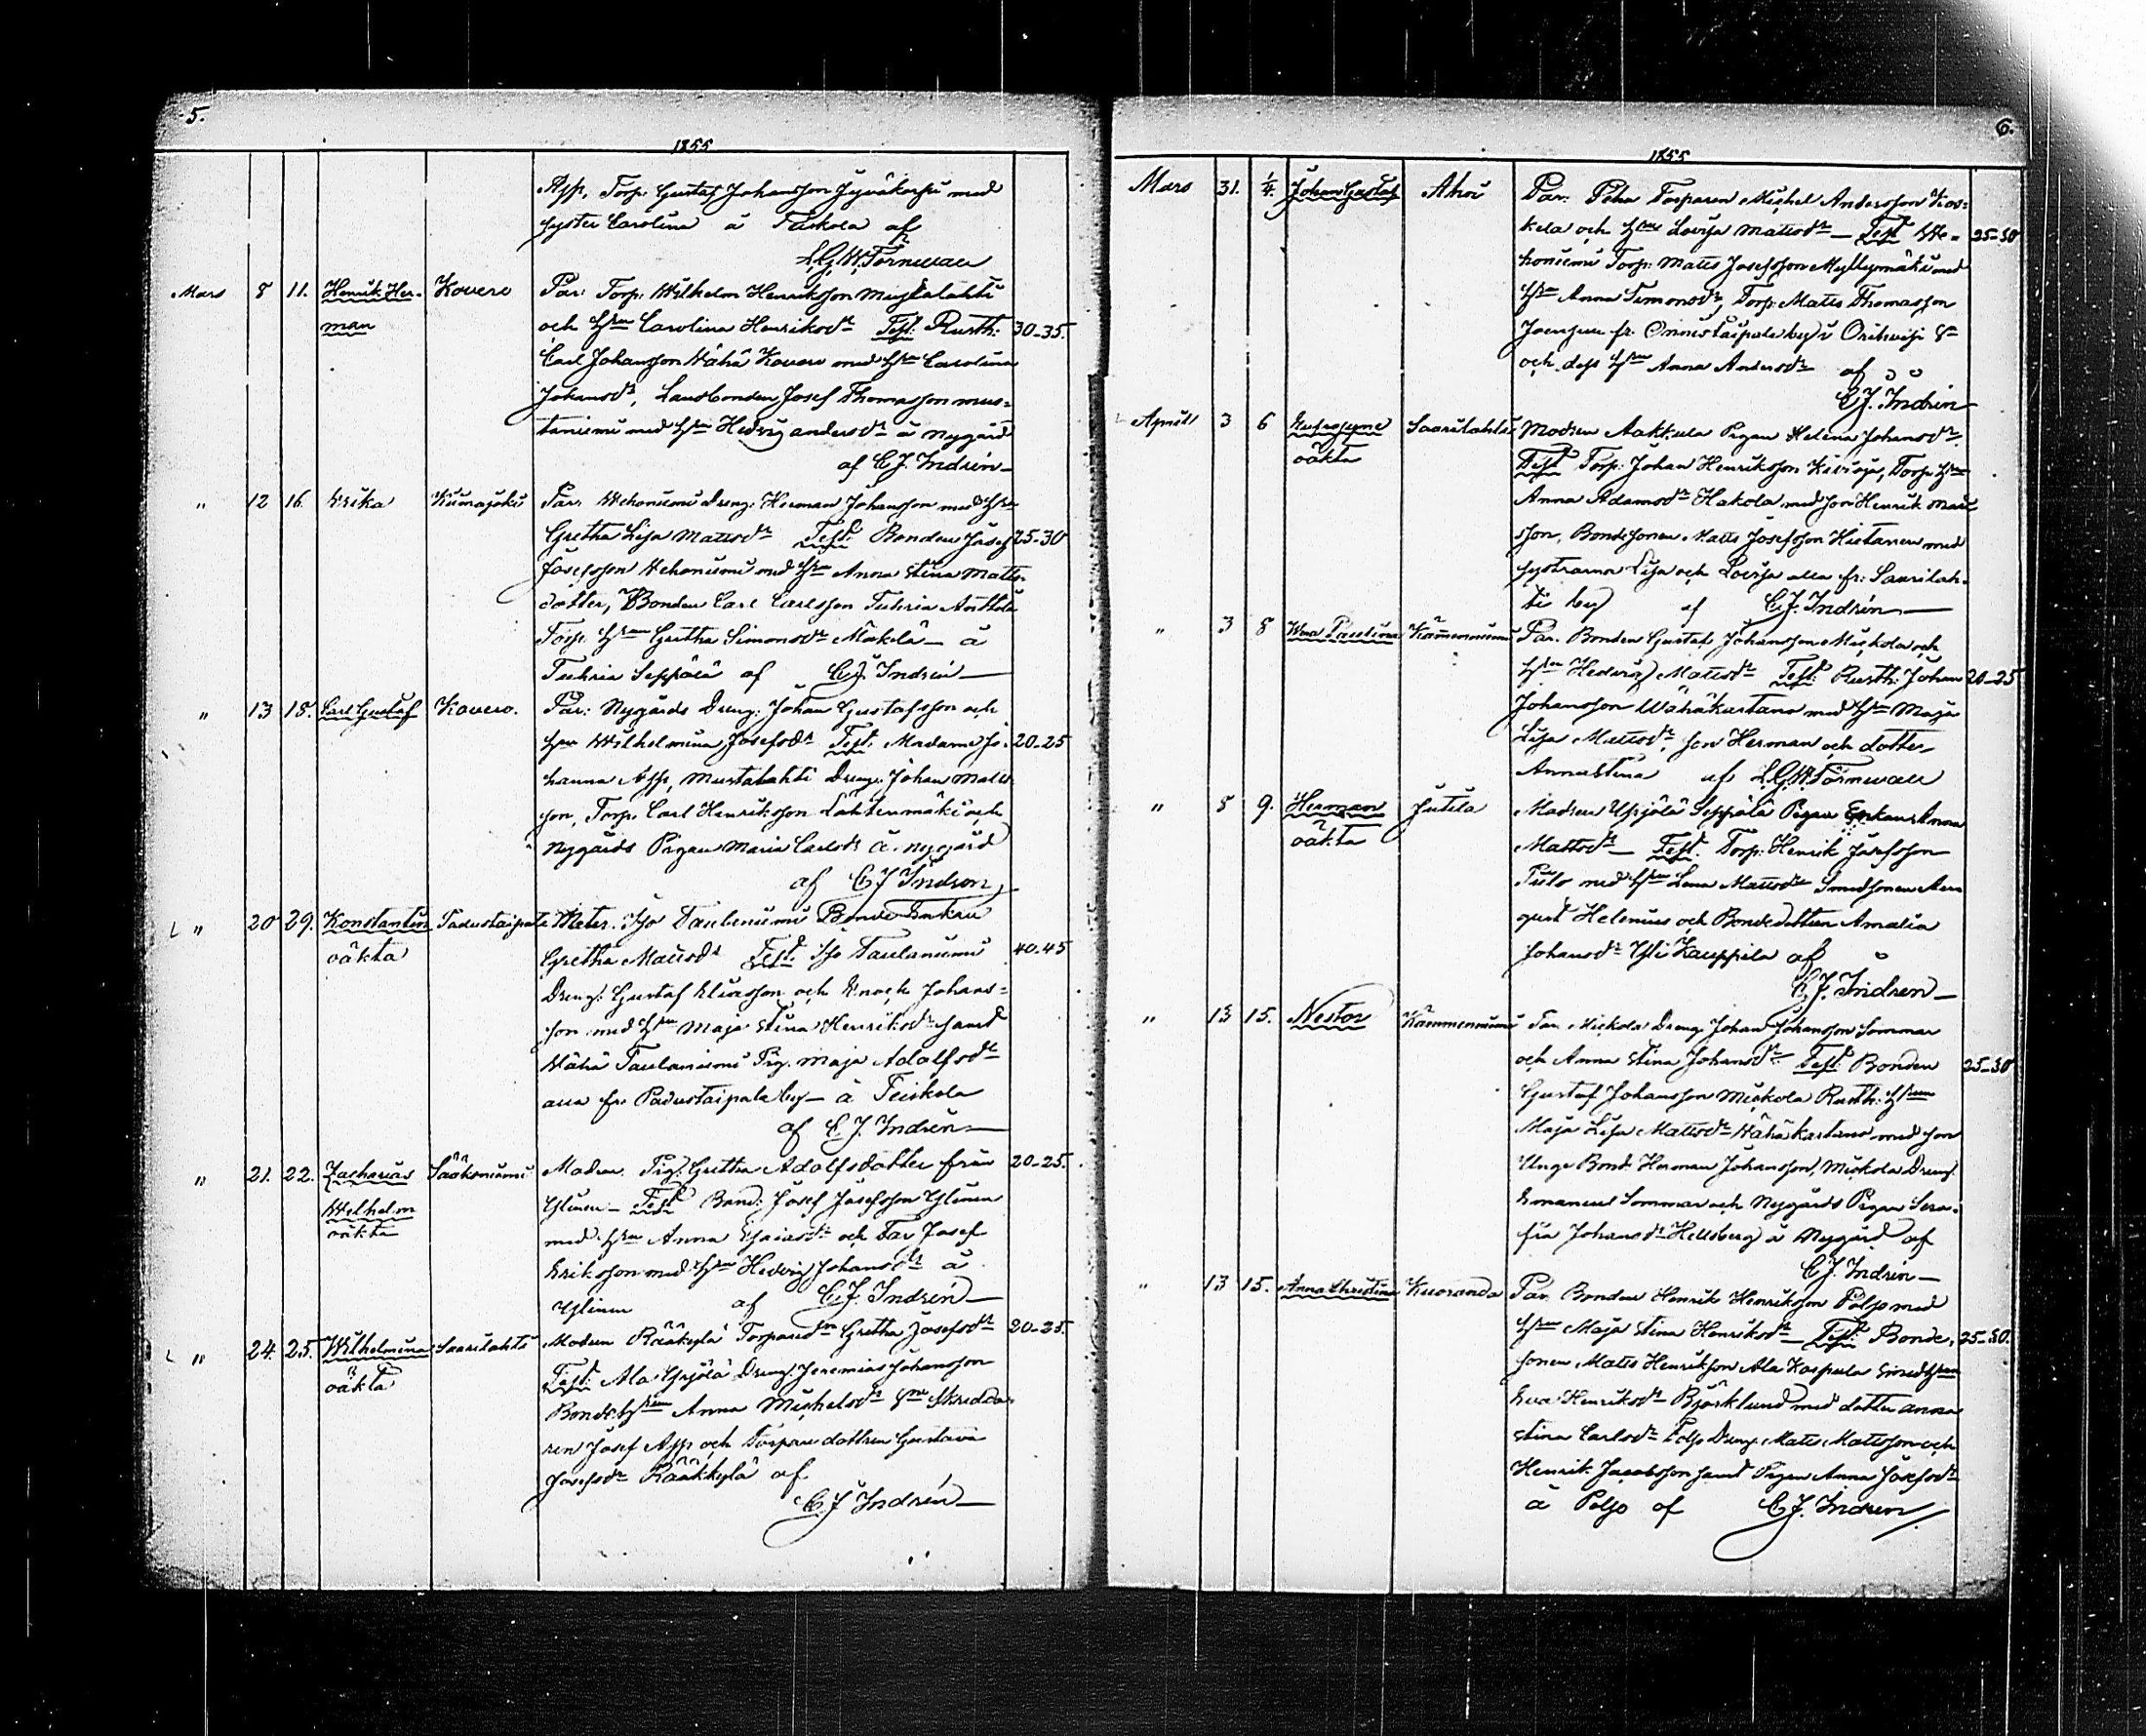 5.
1855
Torp. Gustaf Johansson med
syster Carolina å Teiskola af
L.G.W. Törnwall
Mars 8 11. Henrik Her- Kovero Par: Torp. Wilhelm Henriksson
man och Hru Carolina Henriksdr Test: Rusth: 30-35.
Carl Johansson Wähä Kovero med Hru Carolina
Johansdr, Landbonden Josef Thomasson Mus-
taniemi med Hru Hedvig Andersdr å Nygård
af C.J. Indrén
" 12 16. Erika Kiimajoki Par. Wehoniemi Dreng. Herman Johansson med Hru
Gretha Lisa Mattsdr Test: Bonden Josef 25-30
Josefsson Wehoniemi med Hru Anna Stina Matts-
dotter, Bonden Carl Carlsson Tuhria Anttila
Torp. Hru Gretha Simonsdr Mäkelä å
Tuhria Seppälä af C.J. Indrén
" 13 18. Carl Gustaf Kovero. Par: Nygårds Dreng. Johan Gustafsson och
Hru Wilhelmina Josefsdr Test. Madame Jo- 20-25
hanna Mustalahti Dreng. Johan Matts-
son, Torp. Carl Henriksson Lähteenmäki och
Nygårds Pigan Maria Carlsdr å Nygård
af C J Indren
" 20 29. Konstantin Padustaipale Mater. Iso Taulaniemi Bonde Enkan
oäkta Gretha Mattsdr Test. Iso Taulaniemi 40-45
Dreng. Gustaf Eliasson och Enoch Johans-
son med Hru Maja Stina Henriksdr samt
Wähä Taulaniemi Pig. Maja Adolfsdr
alla fr. Padustaipale by å Teiskola
af C.J. Indrén
" 21. 22. Zacharias Sääksniemi Modren. Pig. Gretha Adolfsdotter från 20-25.
Wilhelm Ylinen Test Bond: Josef Josefsson Ylinen
oäkta med Hru Anna Esaiasdr och Far Josef
Eriksson med Hru Hedvig Johansdr å
Ylinen af C.J. Indrén
" 24. 25. Wilhelmina Saarilahti Modren Rääkkylä Torpared Gretha Josefsdr 20-25.
oäkta Test. Ala Yrjölä Dreng. Jeremias Johansson
Bondehru Anna Michelsdr Skredda-
ren Josef och Torparedottren Gustava
Josefsdr Rääkkylä af
C.J. Indrén
6.
1855
Mars 31. 1/4. Johan Gustaf Par: Torparen Michel Andersson Kos-
kela och Hru Lovisa Mattsdr Test We- 25-30
honiemi Torp: Matts Josefsson Myllymäki med
Hru Anna Simonsdr, Torp. Matts Thomasson
fr. Onnistaipale by i Orihvesi
och dess Hru Anna Andersdr af
C.J. Indrén
Aprill 3 6 Eufrosyne Saarilahti Modren Aakkula Pigan Helena Johansdr.
oäkta Test Torp. Johan Henriksson Kivioja, Torp Hru
Anna Adamsdr Hakola med son Henrik Matts
son, Bondesonen Matts Josefsson Hietanen med
systrarna Lisa och Lovisa alla fr. Saarilah-
ti by af C.J. Indrén
" 3 8 Wma Paulina Kämmenniemi Par. Bonden Gustaf Johansson Mickola och
Hru Hedvig Mattsdr Test: Rusth: Johan 20-25
Johansson Wähäkartano med Hru Maja
Lisa Mattsdr, son Herman och dotter
Annastina af L.G.W. Törnwall
" 8 9. Herman Jutila Modren Yrjölä Seppälä Pigan Enkan Anna
oäkta Mattsdr Test. Torp. Henrik Josefsson
med Hru Lena Mattsdr Smedsonen Au-
gust Helenius och Bondedottren Amalia
Johansdr Yli Kauppila af
C.J. Indrén
" 13 15. Nestor Kämmenniemi Par. Mickola Dreng Johan Johansson Sommar
och Anna Stina Johansdr Test: Bonden 25-30
Gustaf Johansson Mickola Rusth: Hru
Maja Lisa Mattsdr Wähäkartano med son
Unge Bond. Herman Johansson, Mickola Dreng.
Emanuel Sommar och Nygårds Pigan Sera-
fia Johansdr Hellsberg å Nygård af
C.J. Indrén
" 13 15. Anna Christina Kuoranda Par. Bonden Henrik Henriksson Polso med
Hru Maja Stina Henriksdr Test: Bonde, 25-30.
sonen Matts Henriksson Ala Kaspula Smedhru
Eva Henriksdr Björklund med dotter Anna
Stina Carlsdr Polso Dreng. Matts Mattsson och
Henrik Jacobsson samt Pigan Anna Josefsdr
å Polso af C.J. Indren